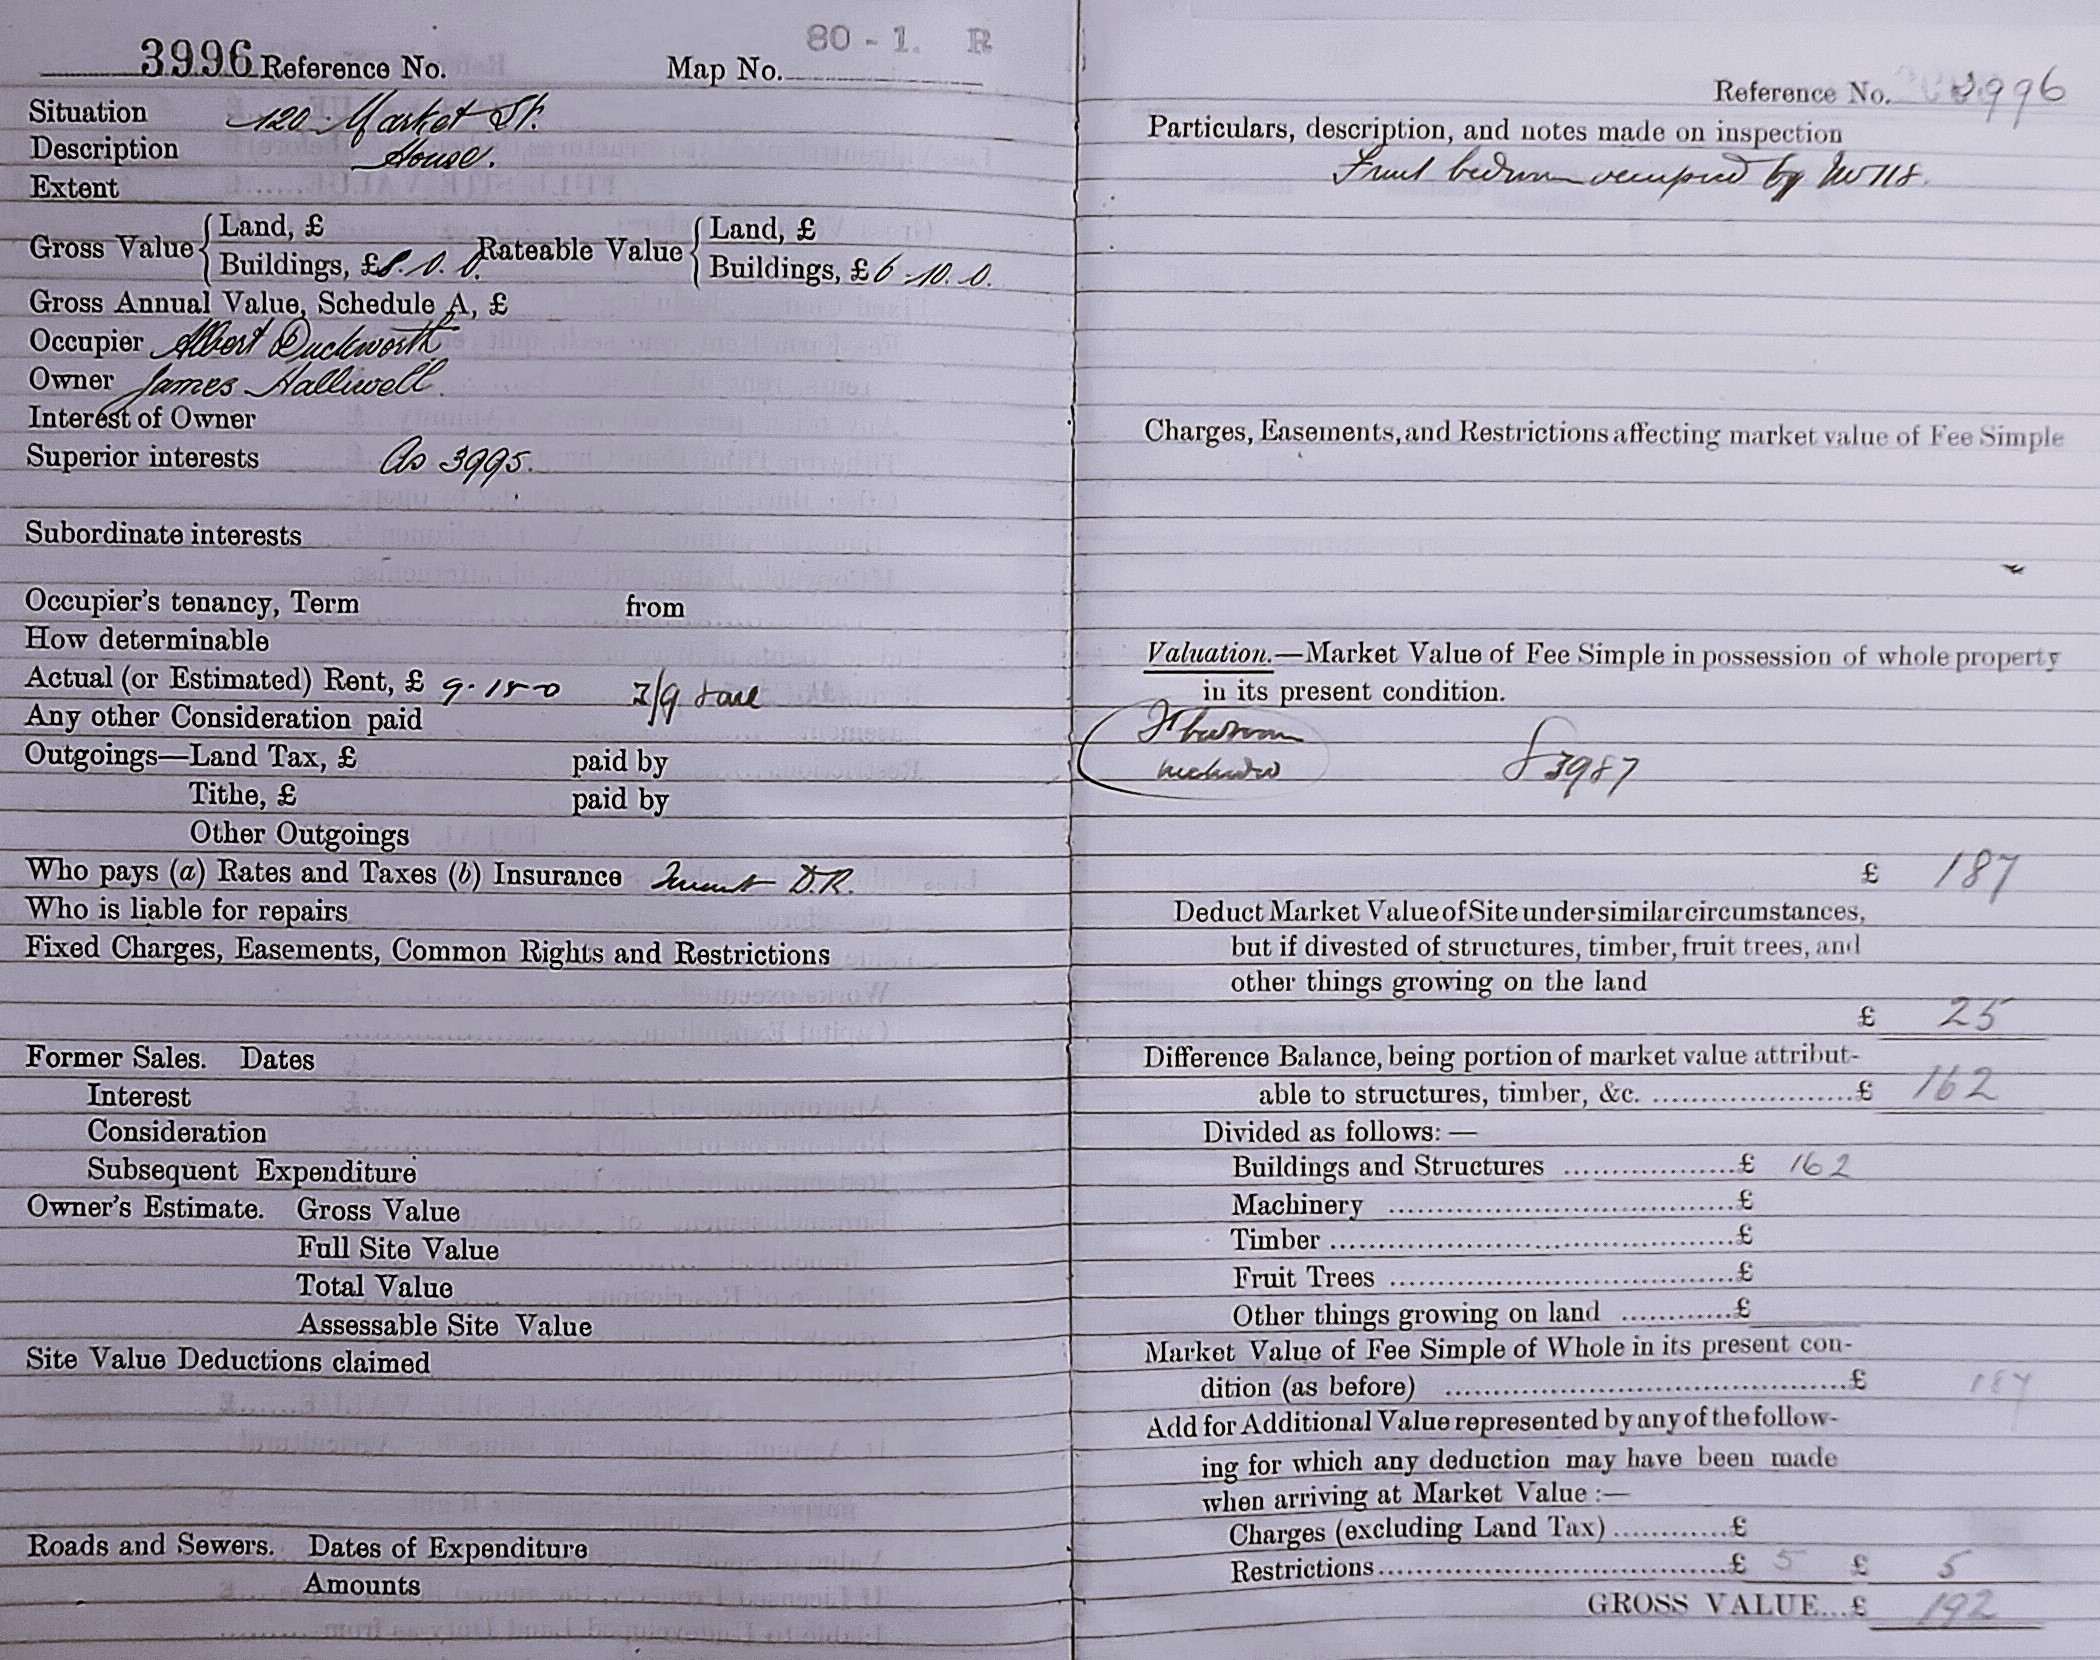 3996 Reference No. Map No. 80 - 1. R
Situation 120 Market St.
Description House.
Extent
Gross Value { Land, £
Buildings, £8.0.0. Rateable Value { Land, £
Buildings, £6-10.0.
Gross Annual Value, Schedule A, £
Occupier Albert Duckworth
Owner James Halliwell.
Interest of Owner
Superior interests As 3995.
Subordinate interests
Occupier's tenancy, Term from
How determinable
Actual (or Estimated) Rent, £ 9.18-0 3/9
Any other Consideration paid
Outgoings—Land Tax, £ paid by
Tithe, £ paid by
Other Outgoings
Who pays (a) Rates and Taxes (b) Insurance Tenant D.R.
Who is liable for repairs
Fixed Charges, Easements, Common Rights and Restrictions
Former Sales. Dates
Interest
Consideration
Subsequent Expenditure
Owner's Estimate. Gross Value
Full Site Value
Total Value
Assessable Site Value
Site Value Deductions claimed
Roads and Sewers. Dates of Expenditure
Amounts
Reference No. 3996
Particulars, description, and notes made on inspection
Front bedroom occupied by No 118.
Charges, Easements, and Restrictions affecting market value of Fee Simple
Valuation.—Market Value of Fee Simple in possession of whole property
in its present condition.
F bedroom
included
3987
£ 187
Deduct Market Value of Site under similar circumstances,
but if divested of structures, timber, fruit trees, and
other things growing on the land
£ 25
Difference Balance, being portion of market value attribut-
able to structures, timber, &c. ....................£ 162
Divided as follows: —
Buildings and Structures .................£ 162
Machinery ..................................£
Timber ........................................£
Fruit Trees ..................................£
Other things growing on land ............£
Market Value of Fee Simple of Whole in its present con-
dition (as before) ........................................£ 187
Add for Additional Value represented by any of the follow-
ing for which any deduction may have been made
when arriving at Market Value :—
Charges (excluding Land Tax) ............£
Restrictions...................................£ 5 £ 5
GROSS VALUE...£ 192